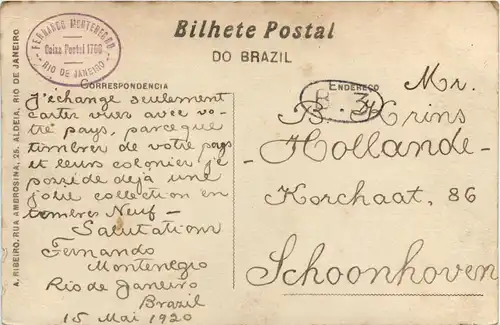 FERNANDO MONTENEGRO
Caixa Postal 1760
RIO DE JANEIRO
Bilhete Postal
DO BRAZIL
CORRESPONDENCIA
J'échange seulement
cartes vues avec vo-
tre pays, parceque
timbres de votre pays
et leurs colonies j'e
possède déjà une
jolie collection en
timbres Neuf -
Salutations
Fernando
Montenegro
Rio de Janeiro
Brazil
15 Mai 1920
ENDEREÇO
Mr.
B. Krins
- Hollande -
Korchaat, 86
Schoonhoven
A. RIBEIRO. RUA AMBROSINA, 25, ALDEIA, RIO DE JANEIRO